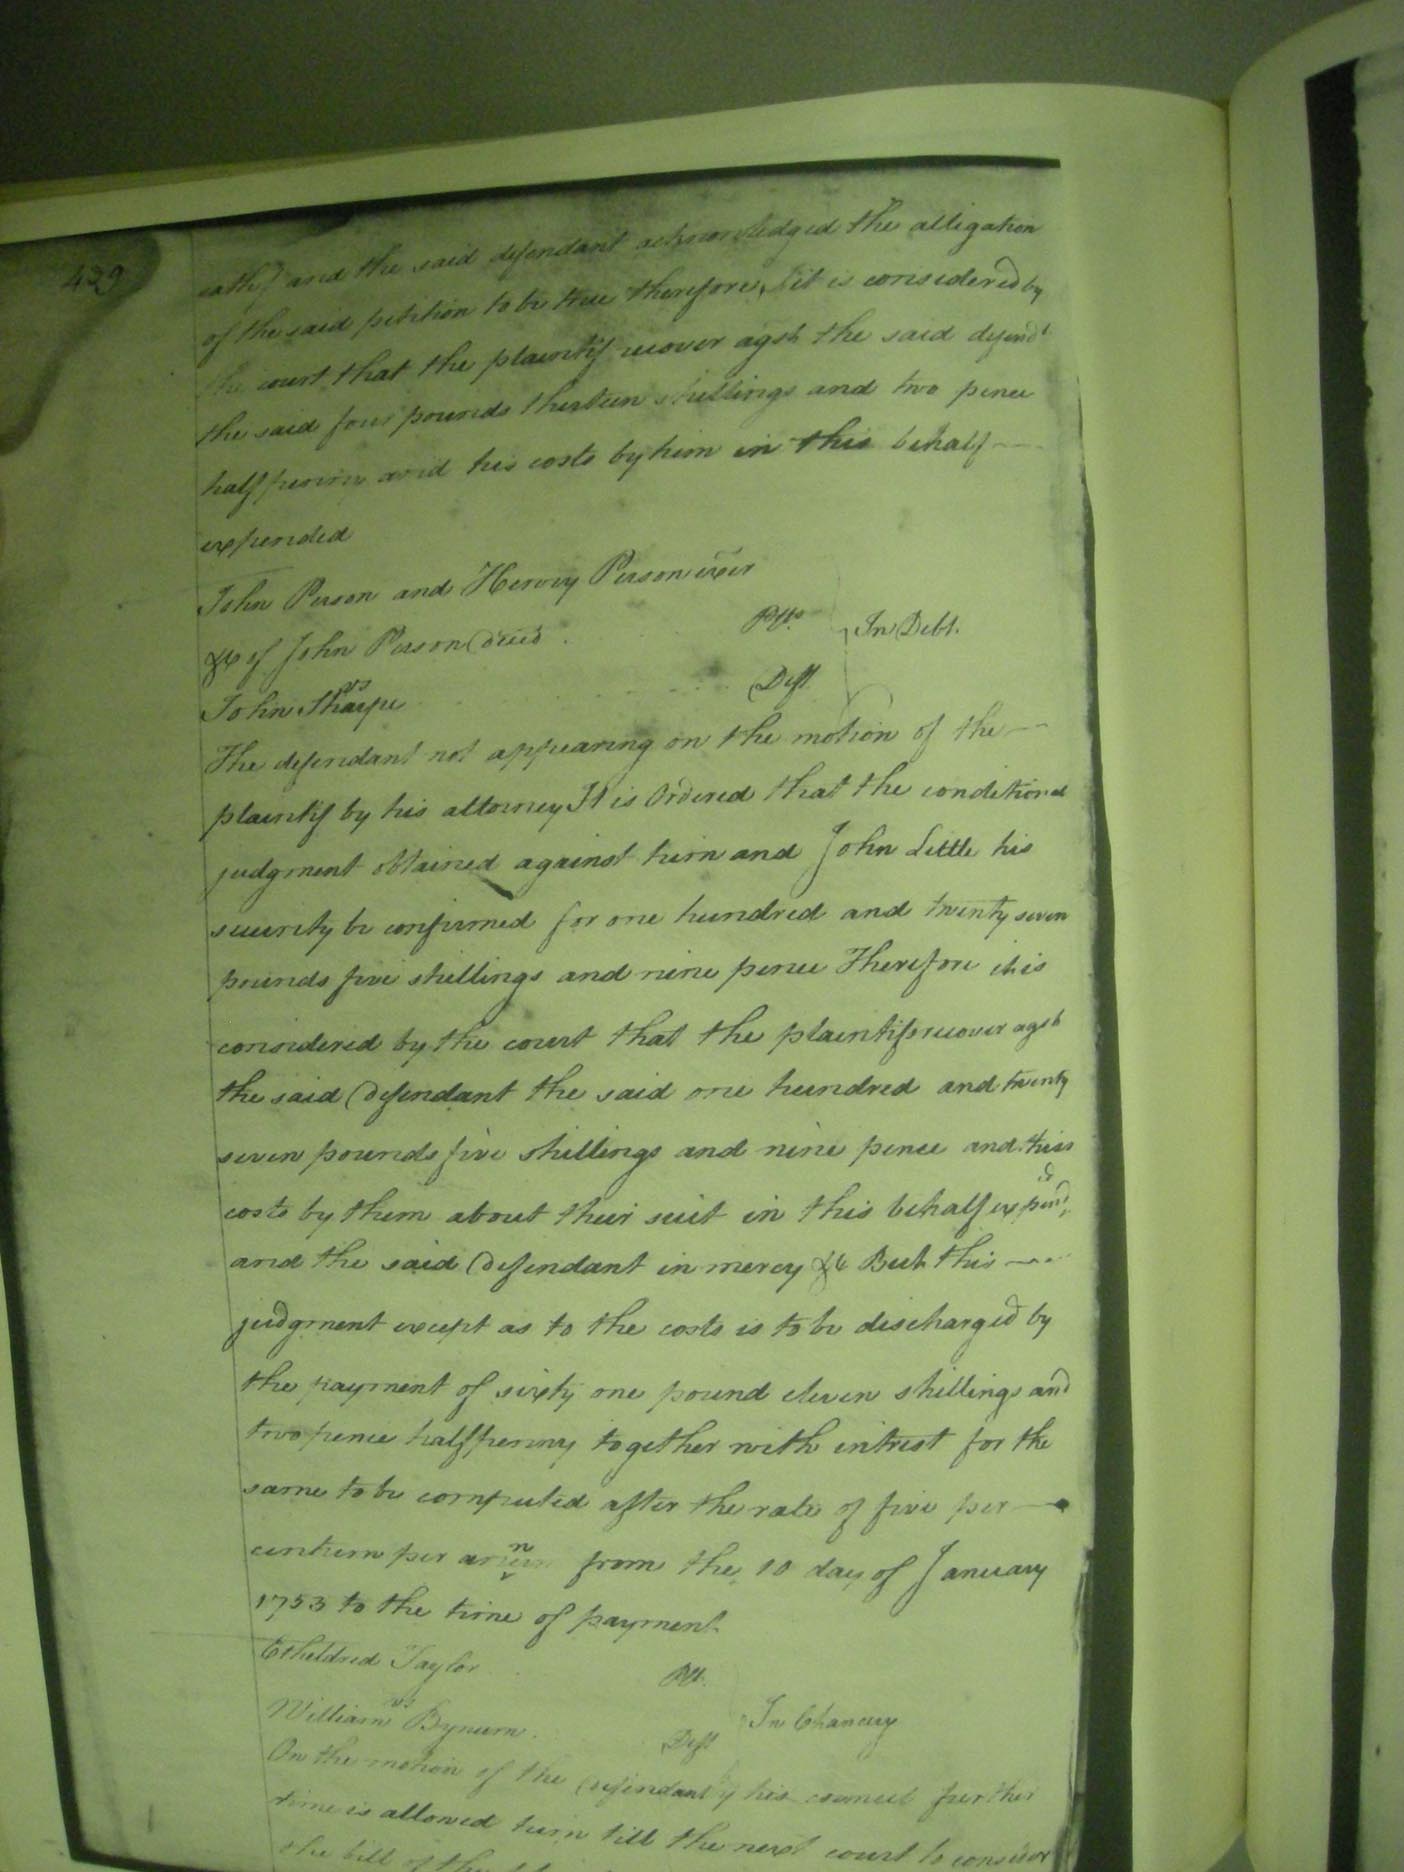 439
and the said defendant acknowledged the alligation
of the said petition to be true therefore it is considered by
the court that the plaintif recover agst the said defendt
the said four pounds thirteen shillings and two pence
half penny and his costs by him in this behalf
expended
John Person and Hervey Person exer
&c of John Person Decd. Plts. In Debt.
vs
John Tharpe Deft
The defendant not appearing on the motion of the
plaintif by his attorney It is Ordered that the conditional
judgment obtained against him and John Little his
security be confirmed for one hundred and twenty seven
pounds five shillings and nine pence Therefore it is
considered by the court that the plaintifs recover agst
the said Defendant the said one hundred and twenty
seven pounds five shillings and nine pence and their
costs by them about their suit in this behalf expend,
and the said Defendant in mercy &c But this
judgment except as to the costs is to be discharged by
the payment of sixty one pound eleven shillings and
two pence half penny together with intrest for the
same to be computed after the rate of five per
centum per annum from the 10 day of January
1753 to the time of payment
Etheldred Taylor Plt.
vs In Chancery
William Bynum. Deft
On the motion of the Defendant by his councel further
time is allowed him till the next court to consider
the bill of the